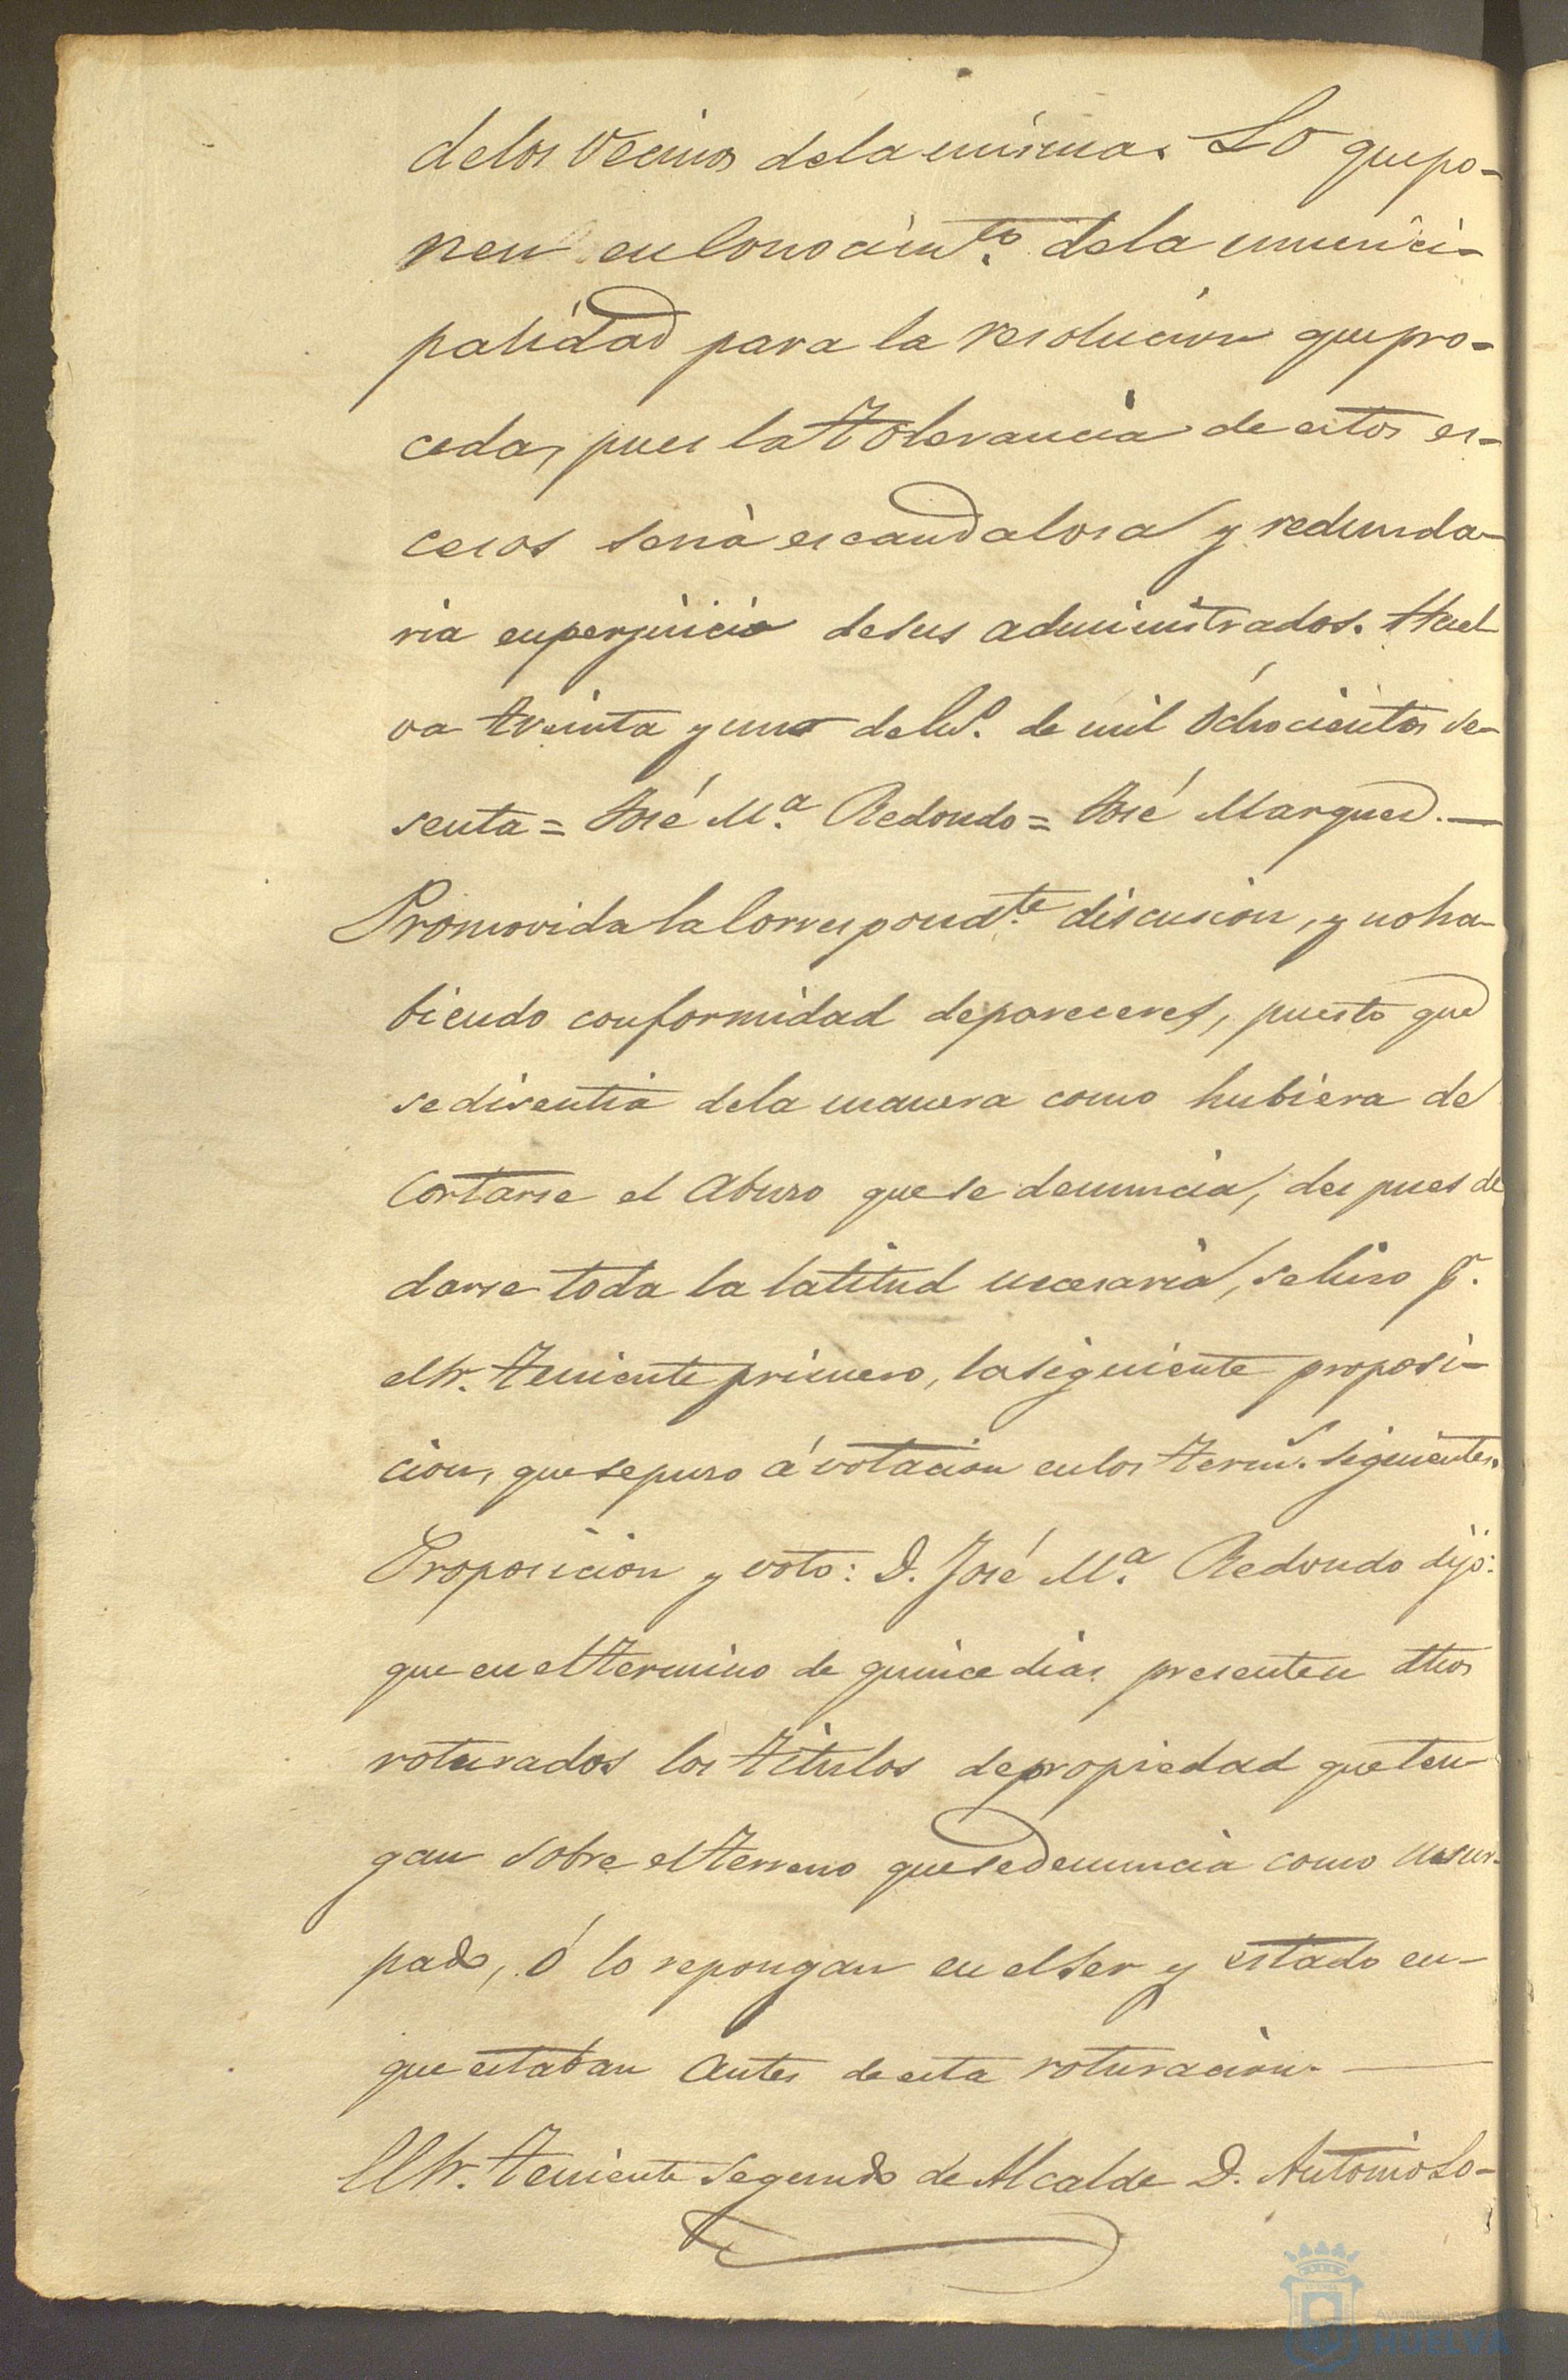 delos Vecinos dela misma. Lo quepo-
nen en Conocimto. dela munici-
palidad para la resolucion quepro-
ceda, pues la tolerancia de estos es-
cesos seria escandalosa y redunda-
ria en perjuicio desus administrados. Huel
va treinta y uno de de mil Ochocientos se-
senta = José Mª. Redondo = José Marquez.—
Promovida la Correspondte. discusion, y no ha-
biendo conformidad depareceres, puesto que
se disentia dela manera como hubiera de
Cortarse el Abuso que se denuncia, des pues de
darse toda la latitud necesaria, se hizo pr.
el Sr. teniente primero, la siguiente proposi-
cion, que se puso á votacion en los térms. siguientes.
Proposicion y voto: D. José Mª. Redondo dijo:
que en el termino de quince dias presenten dhos
roturados los titulos depropiedad que ten
gan sobre el terreno que se denuncia como usur-
pado, ó lo repongan en el ser y estado en-
que estaban Antes de esta roturacion.—
El Sr. teniente segundo de Alcalde D. Antonio Lo-
HUELVA